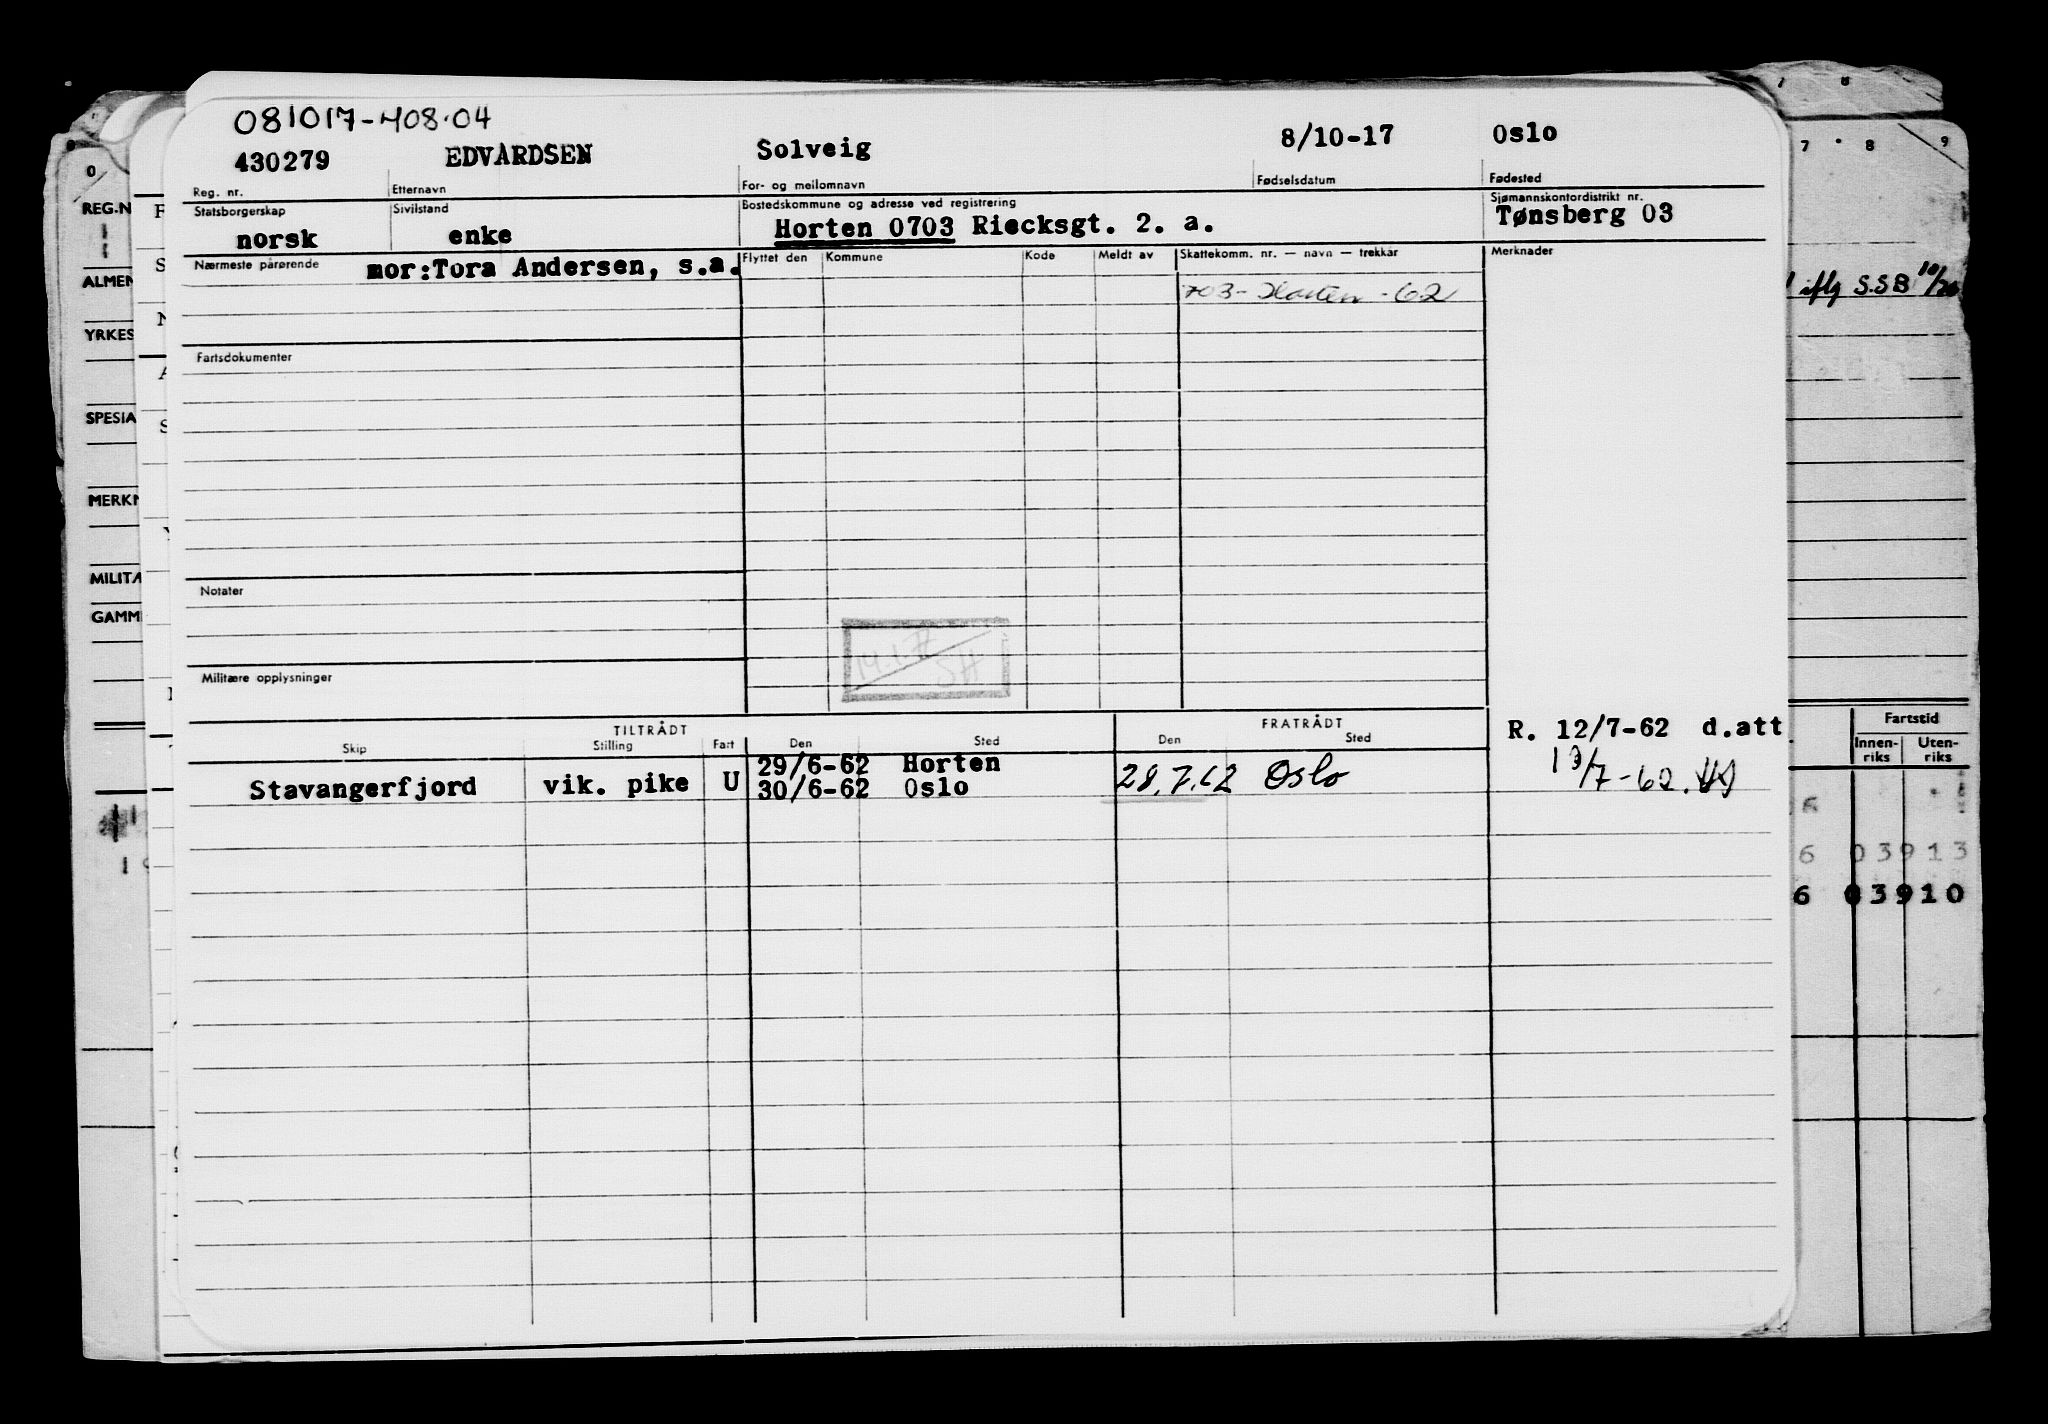 081017-408.04
430279 EDVARDSEN Solveig 8/10-17 Oslo
Reg. nr. Etternavn For- og mellomnavn Fødselsdatum Fødested
Statsborgerskap Sivilstand Bostedskommune og adresse ved registrering Sjømannskontordistrikt nr.
norsk enke Horten 0703 Riecksgt. 2. a. Tønsberg 03
Nærmeste pårørende mor:Tora Andersen, s.a. Flyttet den Kommune Kode Meldt av Skattekomm. nr. — navn — trekkår Merknader
703- Horten -62
Fartsdokumenter
Notater
Militære opplysninger
TILTRÅDT FRATRÅDT
R. 12/7-62 d.att
Skip Stilling Fart Den Sted Den Sted
29/6-62 Horten
Stavangerfjord vik. pike U 30/6-62 Oslo 28.7.62 Oslo
13/7-62.
0
REG.N
ALMEN
YRKES
SPESIA
MERKN
MILITÆ
GAMM
7 8
7 8 9
iflg S.S.B
Fartstid
Innen-riks Uten-riks
6 03913
6 03910